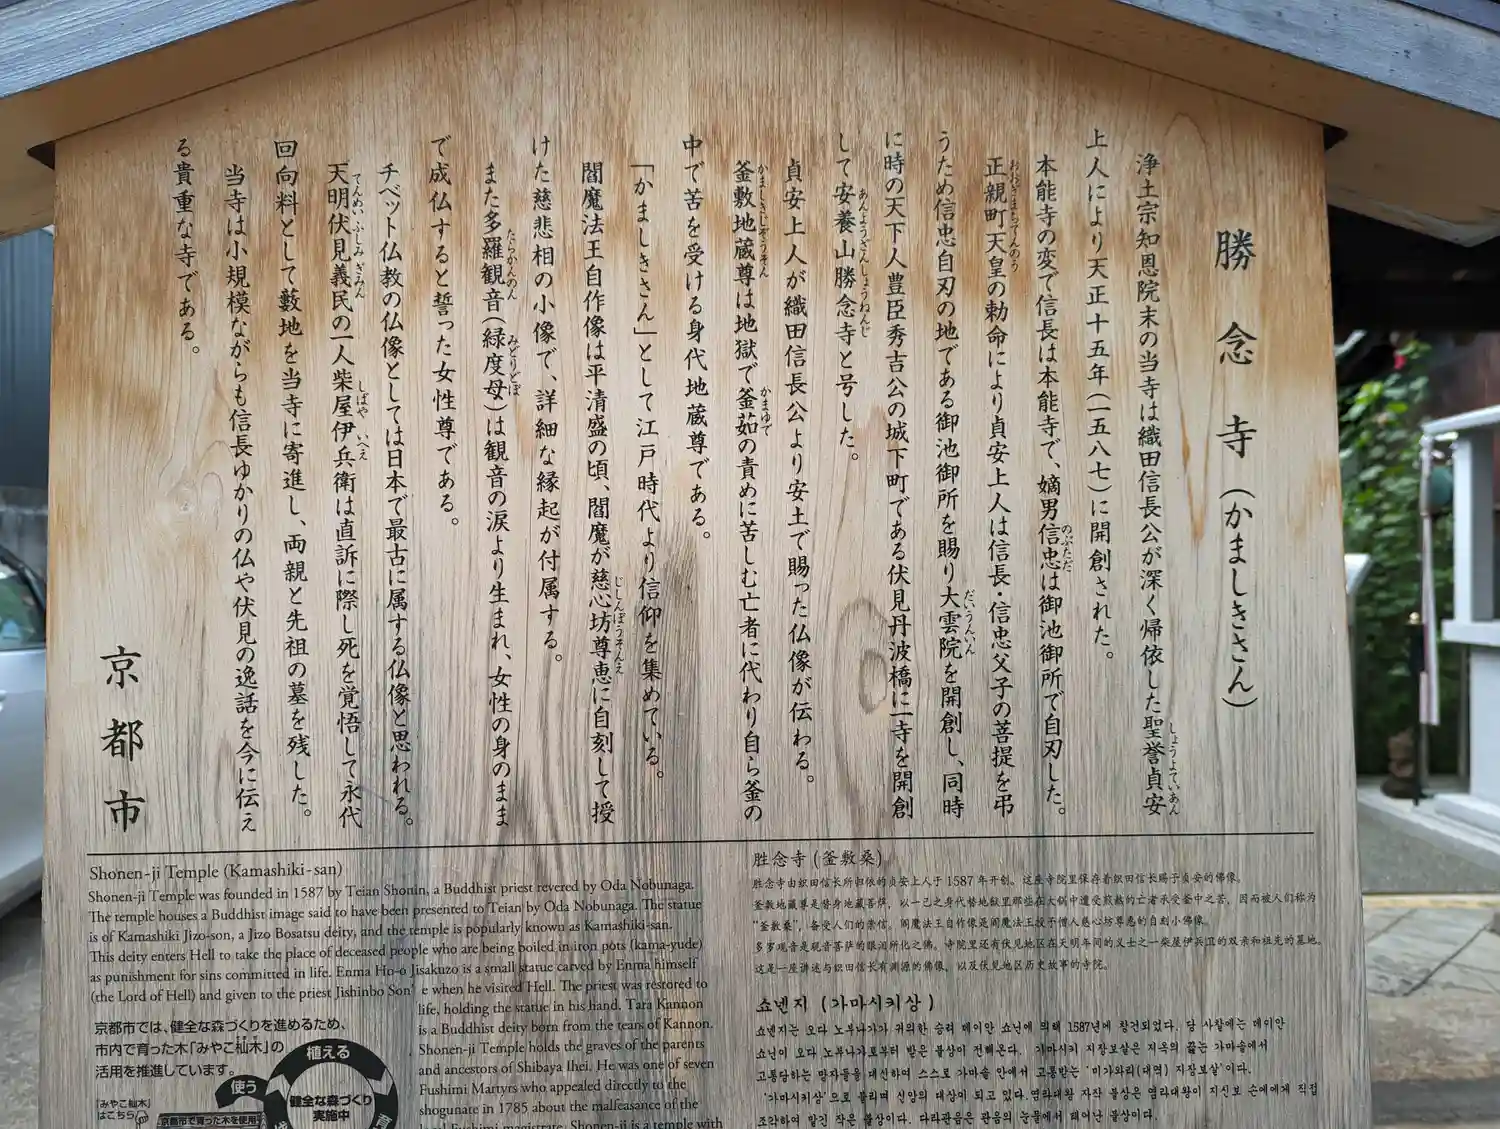 勝念寺(かましきさん)
浄土宗知恩院末の当寺は織田信長公が深く帰依した聖誉貞安
上人により天正十五年(一五八七)に開創された。
本能寺の変で信長は本能寺で、嫡男信忠は御池御所で自刃した。
正親町天皇の勅命により貞安上人は信長・信忠父子の菩提を弔
うため信忠自刃の地である御池御所を賜り大雲院を開創し、同時
に時の天下人豊臣秀吉公の城下町である伏見丹波橋に一寺を開創
して安養山勝念寺と号した。
貞安上人が織田信長公より安土で賜った仏像が伝わる。
釜敷地蔵尊は地獄で釜茹の責めに苦しむ亡者に代わり自ら釜の
中で苦を受ける身代地蔵尊である。
「かましきさん」として江戸時代より信仰を集めている。
閻魔法王自作像は平清盛の頃、閻魔が慈心坊尊恵に自刻して授
けた慈悲相の小像で、詳細な縁起が付属する。
また多羅観音(緑度母)は観音の涙より生まれ、女性の身のまま
で成仏すると誓った女性尊である。
チベット仏教の仏像としては日本で最古に属する仏像と思われる。
天明伏見義民の一人柴屋伊兵衛は直訴に際し死を覚悟して永代
回向料として藪地を当寺に寄進し、両親と先祖の墓を残した。
当寺は小規模ながらも信長ゆかりの仏や伏見の逸話を今に伝え
る貴重な寺である。
京都市
Shonen-ji Temple (Kamashiki-san)
Shonen-ji Temple was founded in 1587 by Teian Shonin, a Buddhist priest revered by Oda Nobunaga.
The temple houses a Buddhist image said to have been presented to Teian by Oda Nobunaga. The statue
is of Kamashiki Jizo-son, a Jizo Bosatsu deity, and the temple is popularly known as Kamashiki-san.
This deity enters Hell to take the place of deceased people who are being boiled in iron pots (kama-yude)
as punishment for sins committed in life. Enma Ho-o Jisakuzo is a small statue carved by Enma himself
(the Lord of Hell) and given to the priest Jishinbo Son'e when he visited Hell. The priest was restored to
life, holding the statue in his hand. Tara Kannon
is a Buddhist deity born from the tears of Kannon.
Shonen-ji Temple holds the graves of the parents
and ancestors of Shibaya Ihei. He was one of seven
Fushimi Martyrs who appealed directly to the
shogunate in 1785 about the malfeasance of the
local Fushimi magistrate. Shonen-ji is a temple with
京都市では、健全な森づくりを進めるため、
市内で育った木「みやこ杣木」の
活用を推進しています。
「みやこ杣木」
はこちら
京都市で育った木を使用
植える
使う
育
健全な森づくり
実施中
胜念寺(釜敷桑)
胜念寺由织田信长所归依的贞安上人于1587年开创。这座寺院里保存着织田信长赐予贞安的佛像。
釜敷地藏尊是替身地藏菩萨,以一己之身代替地狱里那些在大锅中遭受煎熬的亡者承受釜中之苦,因而被人们称为
"釜敷桑",备受人们的崇信。阎魔法王自作像是阎魔法王授予僧人慈心坊尊惠的自刻小佛像。
多罗观音是观音菩萨的眼泪所化之佛。寺院里还有伏见地区在天明年间的义士之一柴屋伊兵卫的双亲和祖先的墓地。
这是一座讲述与织田信长有渊源的佛像,以及伏见地区历史故事的寺院。
쇼넨지 (가마시키상)
쇼넨지는 오다 노부나가가 귀의한 승려 데이안 쇼닌에 의해 1587년에 창건되었다. 당 사찰에는 데이안
쇼닌이 오다 노부나가로부터 받은 불상이 전해온다. 가마시키 지장보살은 지옥의 끓는 가마솥에서
고통당하는 망자들을 대신하여 스스로 가마솥 안에서 고통받는 '미가와리(대명) 지장보살'이다.
'가마시키상'으로 불리며 신앙의 대상이 되고 있다.염라대왕 자작 불상은 염라대왕이 지신보 손에에게 직접
조각하여 맡긴 작은 불상이다. 다라관음은 관음의 눈물에서 태어난 불상이다.